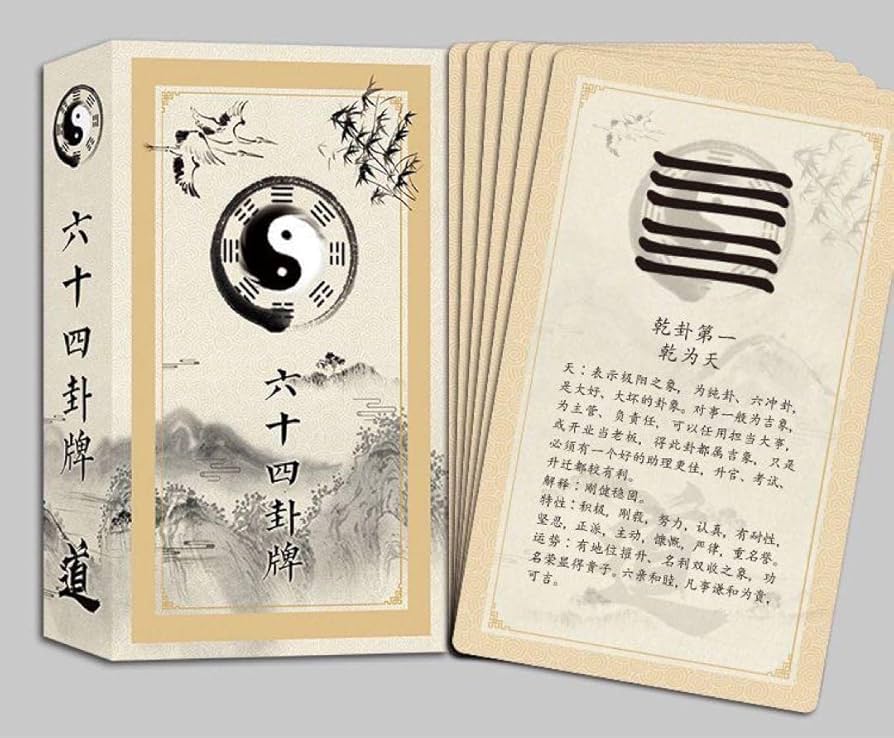 六十四卦牌
道
六十四卦牌
乾卦第一
乾为天
天：表示极阳之象，为纯卦、六冲卦，
是大好、大坏的卦象。对事一般为吉象，
为主管、负责任，可以任用担当大事，
或开业当老板，得此卦都属吉象，只是
必须有一个好的助理更佳，升官、考试、
升迁都较有利。
解释：刚健稳固。
特性：积极，刚毅，努力，认真，有耐性，
坚忍，正派，主动，慷慨，严律，重名誉。
运势：有地位提升、名利双收之象，功
名荣显得贵子。六亲和睦，凡事谦和为贵，
可吉。